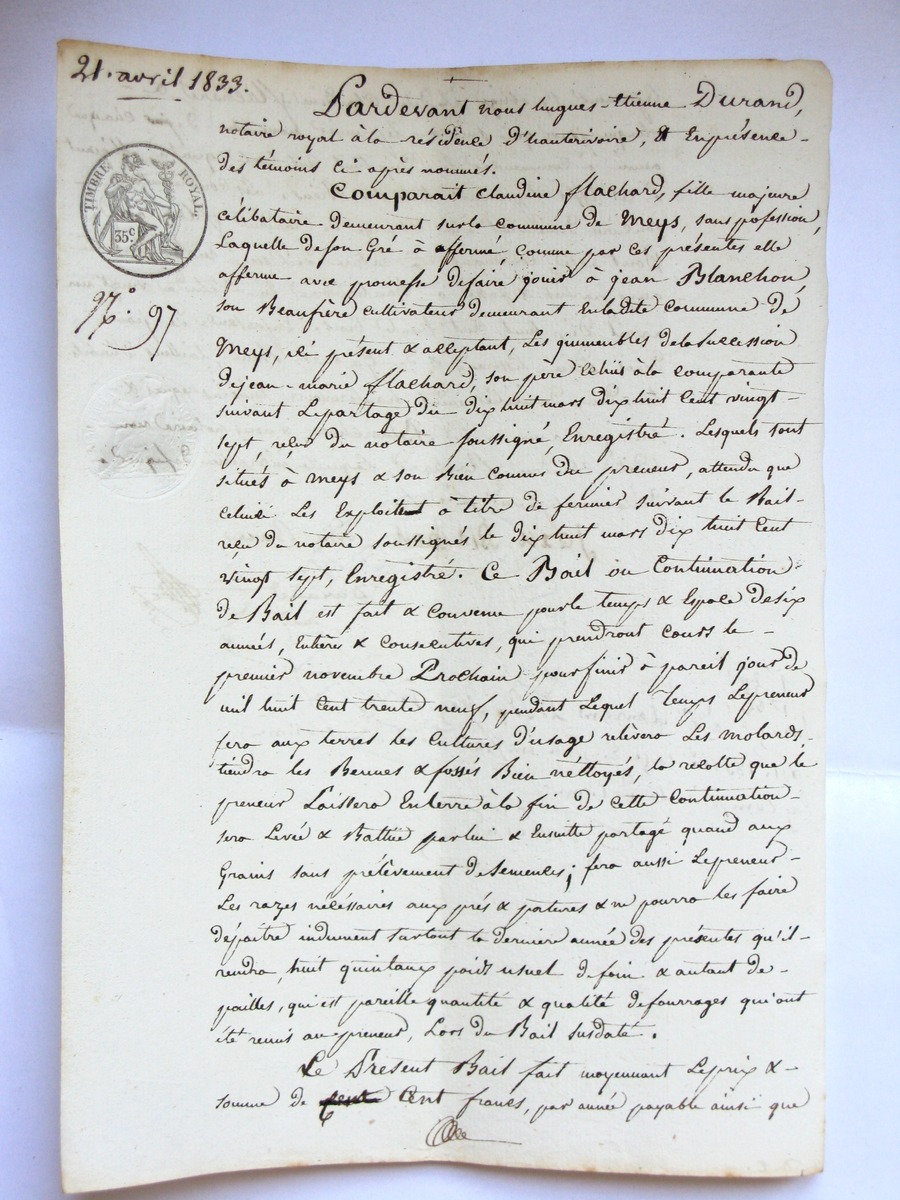 21. avril 1833.
Pardevant nous hugues-Etienne Durand,
notaire royal à la résidence d'hauterivoire, & En présence
des témoins ci après nommés.
TIMBRE ROYAL.
35c.
Comparait Claudine flachard, fille majeure
célibataire demeurant sur la commune de Meys, sans pofession,
Laquelle de son Gré à affermé, comme par ces présentes elle
afferme avec promesse de faire jouir à jean Blanchon,
N.o 97
son Beaufrère cultivateur demeurant En ladite commune de
Meys, ici présent & acceptant, Les immeubles de la succession
de jean-marie flachard, son père échüs à la comparante
suivant Le partage du dix huit mars dix huit Cent vingt-
sept, reçu du notaire soussigné, Enregistré. Lesquels sont
situés à meys & son Bien connus du preneur, attendu que
celui ci Les Exploitent à titre de fermier suivant le Bail-
reçu du notaire soussignés le dix huit mars dix huit Cent
vingt sept, Enregistré. Ce Bail ou Continuation
de Bail est fait & convenu pour le temps & Espace de six
années, Entières & Consécutives, qui prendront cours le -
premier novembre Prochain pour finir à pareil jour de
mil huit Cent trente neuf, pendant Lequel Temps Le preneur
fera aux terres les Cultures d'usage relèvera Les molards,
tiendra les Bermes & fossés Bien néttoyés, la récolte que le
preneur Laissera En terre à la fin de cette Continuation -
sera Levée & Battüe par lui & Ensuitte partagé quand aux
Grains sans prélèvement de semences; fera aussi Le preneur -
Les razes nécéssaires aux prés & patures & ne pourra les faire
dépaitre indument surtout la dernière année des présentes qu'il -
rendra, huit quintaux poids usuel de foin & autant de -
pailles, qui est pareille quantité & qualité de fourrages qui ont
été remis au preneur, Lors du Bail susdaté.
Le Présent Bail fait moyennant Le prix & -
somme de Cent francs, par année payable ainsi que